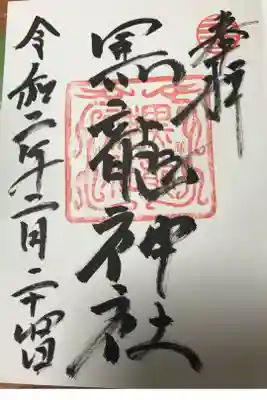 奉拝
黒龍神社
令和二年十二月二十四日